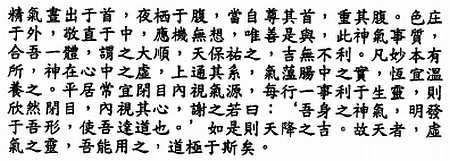 精氣晝出于首，夜栖于腹，當自尊其首，重其腹。色庄
于外，敬直于中，應機無想，唯善是與，此神氣事質，
合吾一體，謂之大順，天保祐之，吉無不利。凡妙本有
所，神在心中之虛，上通其系，氣蕩腸中之實，恆宜溫
養之。平居常宜閉目內視氣源，每行一事利于生靈，則
欣然閉目，內視其心，謝之若曰：‘吾身之神氣，明發
于吾形，使吾達道也。’如是則天降之吉。故天者，虛
氣之靈，吾能用之，道極于斯矣。